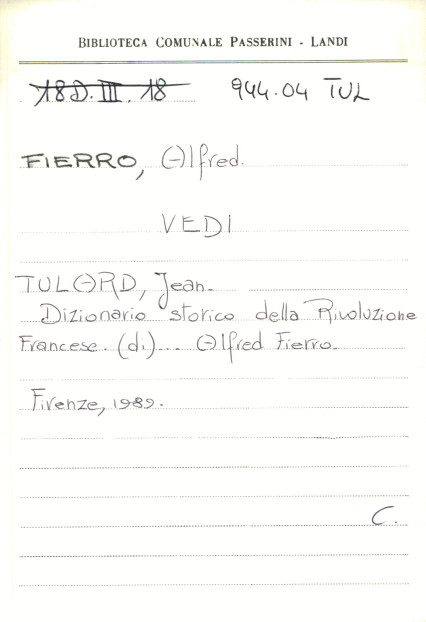 BIBLIOTECA COMUNALE PASSERINI - LANDI
18D.III.18 944.04 TUL
FIERRO, Alfred.
VEDI
TULARD, Jean.
Dizionario storico della Rivoluzione
Francese. (di)... Alfred Fierro.
Firenze, 1989.
C.